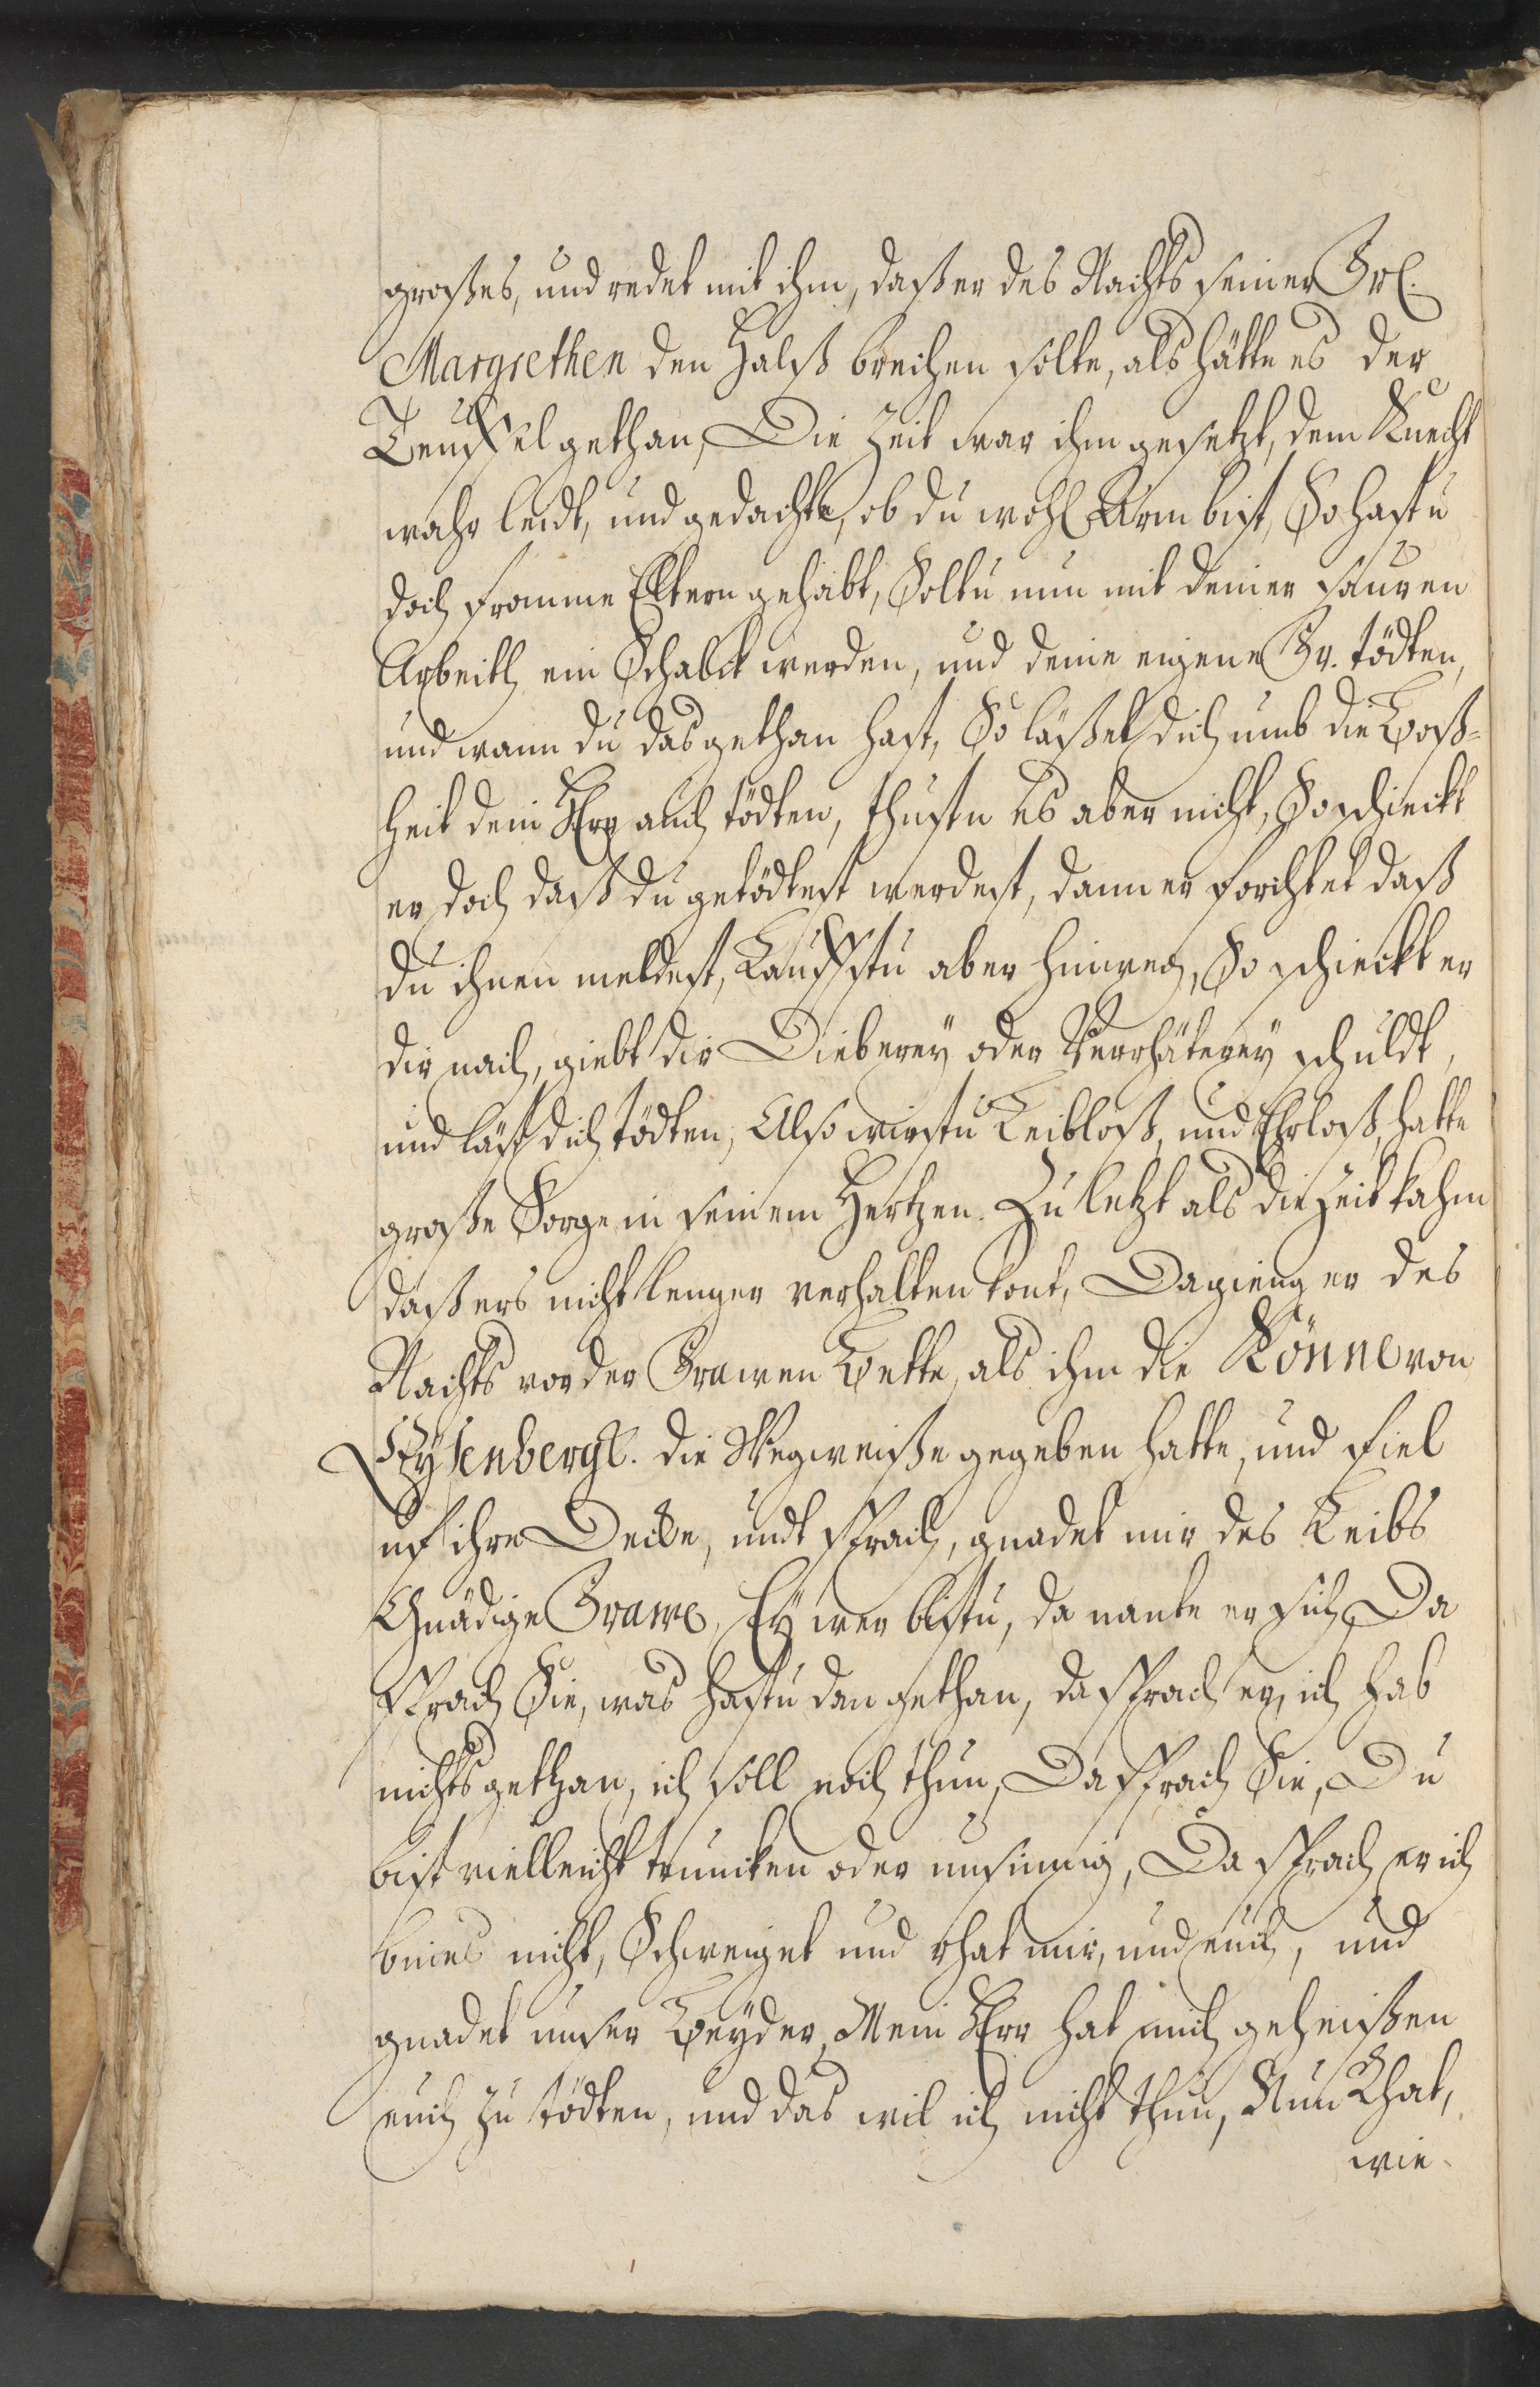 großes, und redet mit ihm, daß er des Nachts seiner Frl.
Margrethen den Halß brechen solte, als hätte es der
Teuffel gethan, Die Zeit war ihm gesetzt, dem Knecht
wahr leidt, und gedachte, ob du wohl Arm bist, So hastu
doch fromme Eltern gehabt, Soltu nun mit deiner sauren
Arbeith ein Schalck werden, und deine eigene Fr. tödten,
und wann du das gethan hast, So läßet dich umb die Boß-
heit dein Herr auch tödten, thustu es aber nicht, So schickt
er doch daß du getödtest werdest, dann er forchtet daß
du ihnen meldest, Lauffstu aber hinweg, So schieckt er
dir nach, giebt dir Dieberey oder Verrhäterey schuldt,
und läst dich tödten, Also wirstu Leibloß, und Ehrloß, hatte
große Sorge in seinem Hertzen. Zu letzt als die Zeit kahm
daß ers nicht lenger verhalten kont, Da gieng er des
Nachts vor der Frawen Bette, als ihm die Könne von
Eysenbergk. die Wegweiße gegeben hatte, und fiel
uf ihre Decke, undt sprach, gnadet mir des Leibs
Gnädige Frawe, Ey wer bistu, da nante er sich, Da
sprach Sie, was hastu dan gethan, da sprach er, ich hab
nichts gethan, ich soll noch thun, Da sprach Sie, Du
bist vielleicht truncken oder unsinnig, Da sprach er ich
bin es nicht, Schweiget und rhat mir, und euch, und
gnadet unser Beyder, Mein Herr hat mich geheißen
euch zu tödten, und das wil ich nicht thun, Nun Rhat,
wie